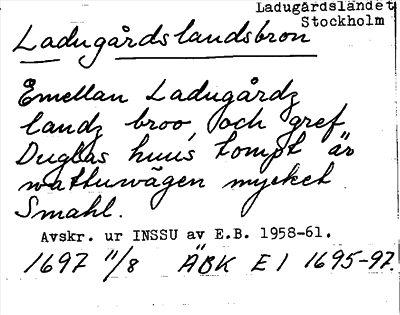 Ladugårdslandet
Stockholm
Ladugårdslandsbron
Emellan Ladugårdz
landz broo, och gref
Duglas huus tompt är
wattuwägen mycket
Smahl.
Avskr. ur INSSU av E.B. 1958-61.
1697 11/8 ÄBK E I 1695-97.